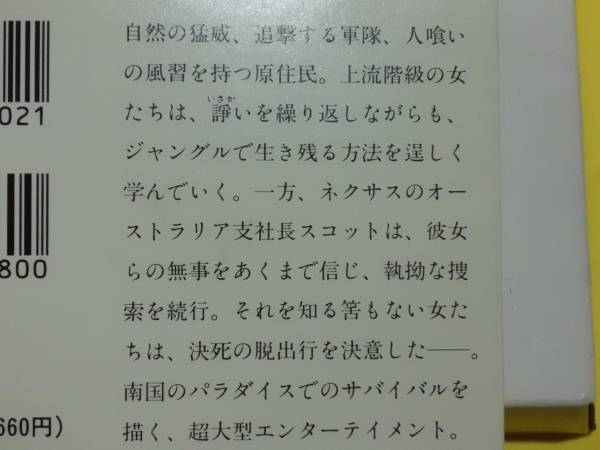 自然の猛威、追撃する軍隊、人喰い
の風習を持つ原住民。上流階級の女
たちは、諍いを繰り返しながらも、
いさか
ジャングルで生き残る方法を逞しく
学んでいく。一方、ネクサスのオー
ストラリア支社長スコットは、彼女
らの無事をあくまで信じ、執拗な捜
索を続行。それを知る筈もない女た
ちは、決死の脱出行を決意した――。
南国のパラダイスでのサバイバルを
描く、超大型エンターテイメント。
021
800
660円)